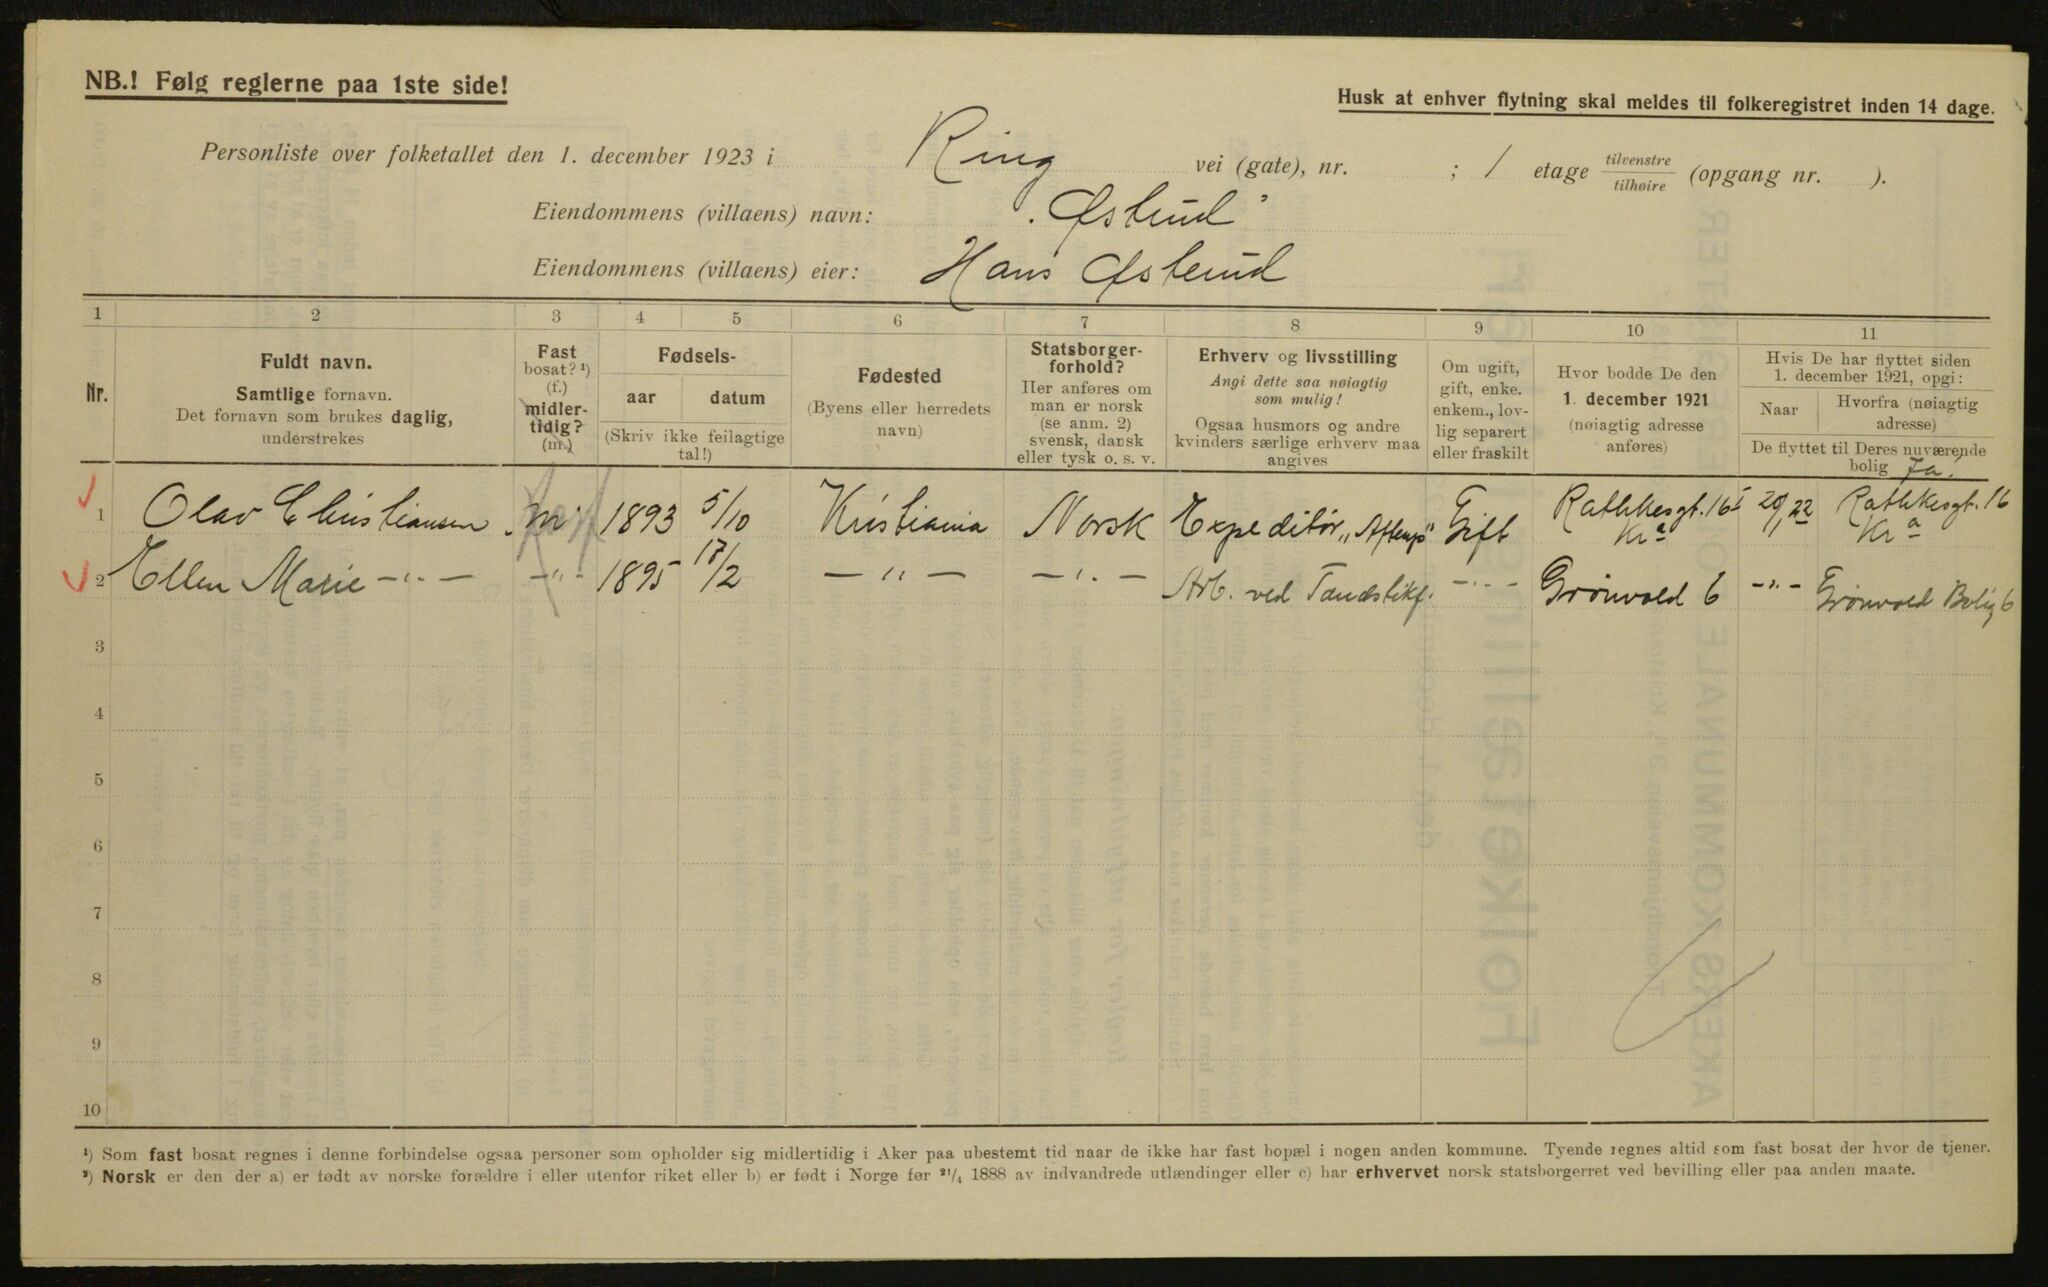 NB.! Følg reglerne paa 1ste side!
Husk at enhver flytning skal meldes til folkeregistret inden 14 dage.
Personliste over folketallet den 1. december 1923 i Ring vei (gate), nr. ; 1 etage tilvenstre/tilhøire (opgang nr. ).
Eiendommens (villaens) navn: „Østeud"
Eiendommens (villaens) eier: Hans Østerud
1 2 3 4 5 6 7 8 9 10 11
Nr.
Fuldt navn.
Samtlige fornavn.
Det fornavn som brukes daglig,
understrekes
Fast
bosat? ¹)
(f.)
midler-
tidig?
(m.)
Fødsels-
aar datum
(Skriv ikke feilagtige
tal!)
Fødested
(Byens eller herredets
navn)
Statsborger-
forhold?
Her anføres om
man er norsk
(se anm. 2)
svensk, dansk
eller tysk o. s. v.
Erhverv og livsstilling
Angi dette saa nøiagtig
som mulig!
Ogsaa husmors og andre
kvinders særlige erhverv maa
angives
Om ugift,
gift, enke.
enkem., lov-
lig separert
eller fraskilt
Hvor bodde De den
1. december 1921
(nøiagtig adresse
anføres)
Hvis De har flyttet siden
1. december 1921, opgi:
Naar
Hvorfra (nøiagtig
adresse)
De flyttet til Deres nuværende
bolig Ja!
1 Olav Christiansen m 1893 5/10 Kristiania Norsk Expeditør „Aftenp" Gift Rathkesgt. 16 I Kr a 20/1 22 Rathkesgt. 16 Kr a
2 Ellen Marie —"— —"— 1895 17/2 —"— —"— Arb. ved Tandstikf. —"— Grønvold 6 —"— Grønvold Bolig 6
3
4
5
6
7
8
9
10
¹) Som fast bosat regnes i denne forbindelse ogsaa personer som opholder sig midlertidig i Aker paa ubestemt tid naar de ikke har fast bopæl i nogen anden kommune. Tyende regnes altid som fast bosat der hvor de tjener.
²) Norsk er den der a) er født av norske forældre i eller utenfor riket eller b) er født i Norge før 21/4 1888 av indvandrede utlændinger eller c) har erhvervet norsk statsborgerret ved bevilling eller paa anden maate.